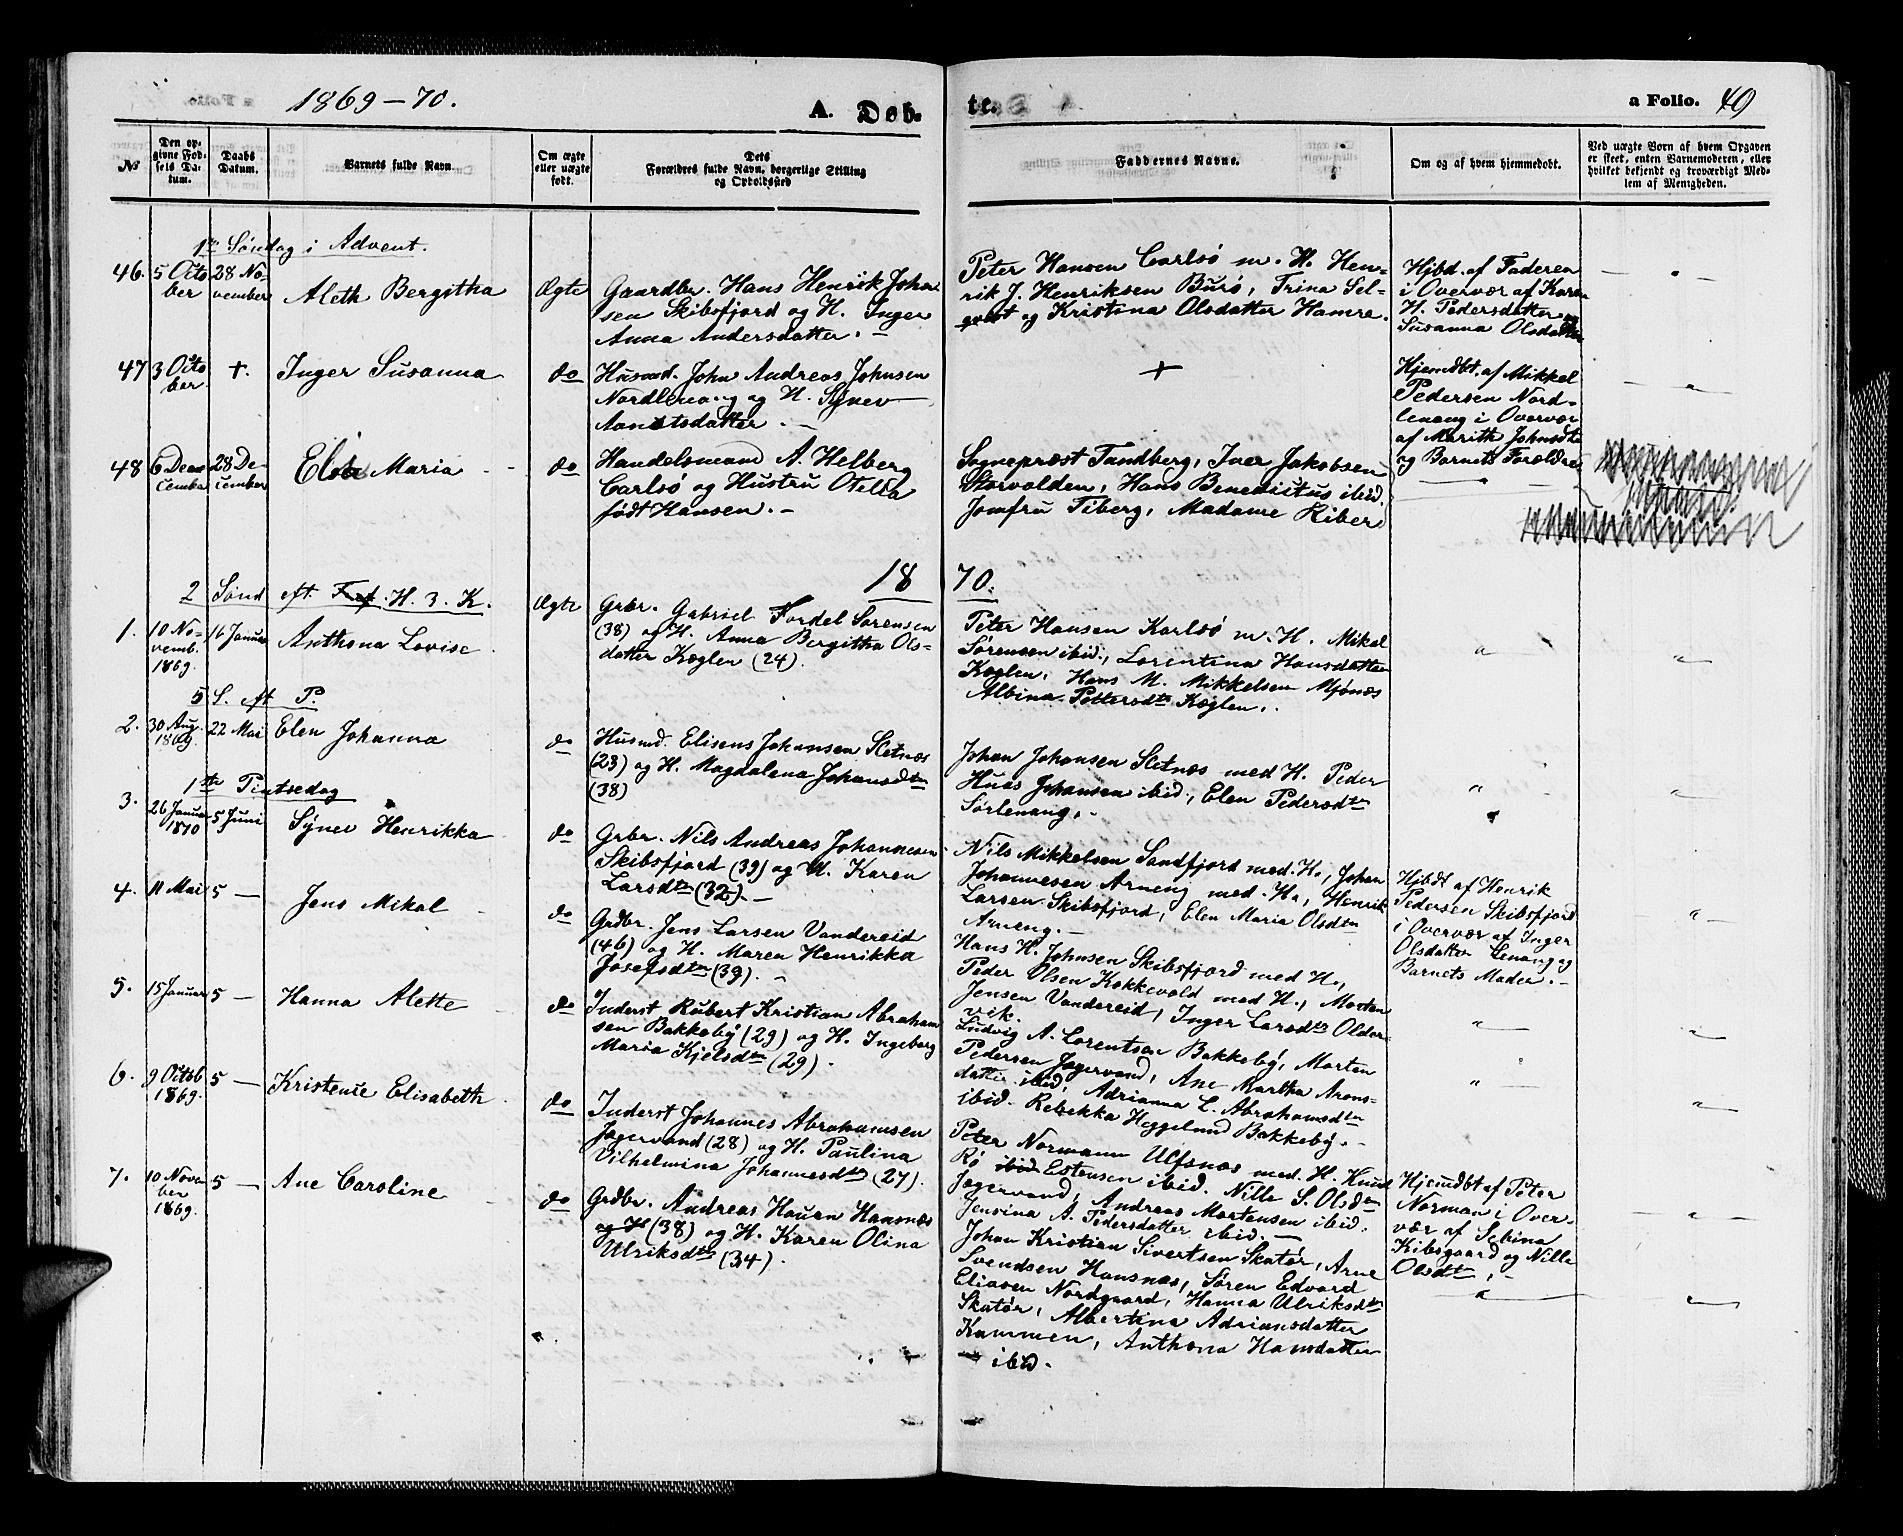 1869-70.
A. Døb-
te.
a Folio. 49
№
Den op-
givne Fød-
sels Da-
tum.
Daabs
Datum.
Barnets fulde Navn.
Om ægte
eller uægte
født.
Dets
Forældres fulde Navn, borgerlige Stilling
og Opholdssted
Faddernes Navne.
Om og af hvem hjemmedøbt.
Ved uægte Børn af hvem Opgaven
er skeet, enten Barnemoderen, eller
hvilket bekjendt og troværdigt Med-
lem af Menigheden.
1ste Søndag i Advent.
46.
5 Octo
ber
28 No-
vember
Aleth Bergitha
Ægte
Gaardbr. Hans Henrik Johan
sen Skibsfjord og H. Inger
Anna Andersdatter. -
Peter Hansen Carlsø m. H. Hen-
rik J. Henriksen Burø, Trina Sel-
qvist og Kristina Olsdatter Hamre.
Hjbd. af Faderen
i Overvær af Karen
H. Pedersdatter og
Susanna Olsdatter
47
3 Octo
ber
+.
Inger Susanna
do
Husmd. John Andreas Johnsen
Nordlenang og H. Synev
datter. -
+
Hjemdbt. af Mikkel
Pedersen Nord-
lenang i Overvær
af Marith Johnsdtr
og Barnets Forældre
48
6 De
cember
28 De-
cember
Elsa Maria
do
Handelsmand A. Helberg
Carlsø og Hustru Otelia
født Hansen. -
Sognepræst Tandberg, Iver Jakobsen
Storvolden, Hans Benedictus ibid.
Jomfru Tiberg, Madame Kiberi
18 70.
2 Sønd eft. H. 3. K.
1.
10 No-
vemb.
1869.
16 Januar
Anthona Lovise
Ægte
Grbr. Gabriel Fordel Sørensen
(38) og H. Anna Bergitha Ols-
datter Køglen (24).
Peter Hansen Karlsø m. H. Mikal
Sørensen ibid., Lorentina Hansdatter
Køglen, Hans M. Mikkelsen Mjønæs
Albina Pettersdtr Køglen.
5 S. eft P.
2.
30 Aug.
1869.
22 Mai
Elen Johanna
do
Husmd. Elisens Johansen Sletnæs
(23) og H. Magdalena Johansdtr
(38)
Johan Johansen Sletnæs med H. Peder
Huas Johansen ibid., Elen Pedersdtr
Sørlenang. -
1ste Pintsedag
3.
26 Januar
1870
5 Juni
Synev Henrikka
do
Grbr. Nils Andreas Johannesen
Skibsfjord (39) og H. Karen
Larsdtr (32). -
Nils Mikkelsen Sandfjord med H., Johan
Johannesen Arneng med H., Henrik
Larsen Skibsfjord, Elen Maria Olsdtr
Arneng. -
4.
11 Mai
5 -
Jens Mikal
do
Grdbr. Jens Larsen Vandereid
(46) og H. Maren Henrikka
Josefsdtr (39). -
Hans H. Johnsen Skibsfjord med H.,
Peder Olsen Kokkevold med H., Morten
Jensen Vandereid, Inger Larsdtr Older-
vik.
Hjbdt af Henrik
Pedersen Skibsfjord
i Overvær af Inger
Olsdatter Lenang og
Barnets Moder. -
5.
15 Januar
5 -
Hanna Alette
do
Inderst Rubert Kristian Abraham
sen Bakkeby (29) og H. Ingeborg
Maria Kjelsdtr (29).
Ludvig A. Lorentsen Bakkeby, Morten
Pedersen Jægervand, Ane Martha Arons-
datter ibid, Adrianna L. Abrahamsdtr
ibid. Rebekka Heggelund Bakkeby. -
6.
9 Octob
1869.
5 -
Kristense Elisabeth
do
Inderst Johannes Abrahamsen
Jægervand (28) og H. Paulina
Vilhelmina Johannesdtr (27).
Peter Normann Ulfsnæs med H. Knud
Rø ibid Estensen ibid. Nille S. Olsdtr
Jægervand, Andreas Mortensen ibid.
Jensina A. Pedersdatter ibid. -
Hjemdbt af Peter
Norman i Over-
vær af Sebina
Kibsgaard og Nille
Olsdtr. -
7.
10 Novem
ber
1869.
5 -
Ane Caroline
do
Grdbr. Andreas Hauan Hansnæs
og H (38) og H. Karen Olina
Ulriksdtr (34).
Johan Kristian Sivertsen Skatør, Arne
Svendsen Hansnæs, Søren Edvard
Eliasen Nordgaard, Hanna Ulriksdtr
Skatør, Albertina Adriansdatter
Kammen, Anthona Hansdatter
ibid.